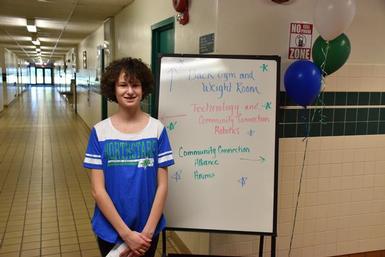 NO
ZONE
Back Gym and
Weight Room
Technology and
Community Connection
Robotics
Community Connection
Advance
Anime
NORTHSTARS